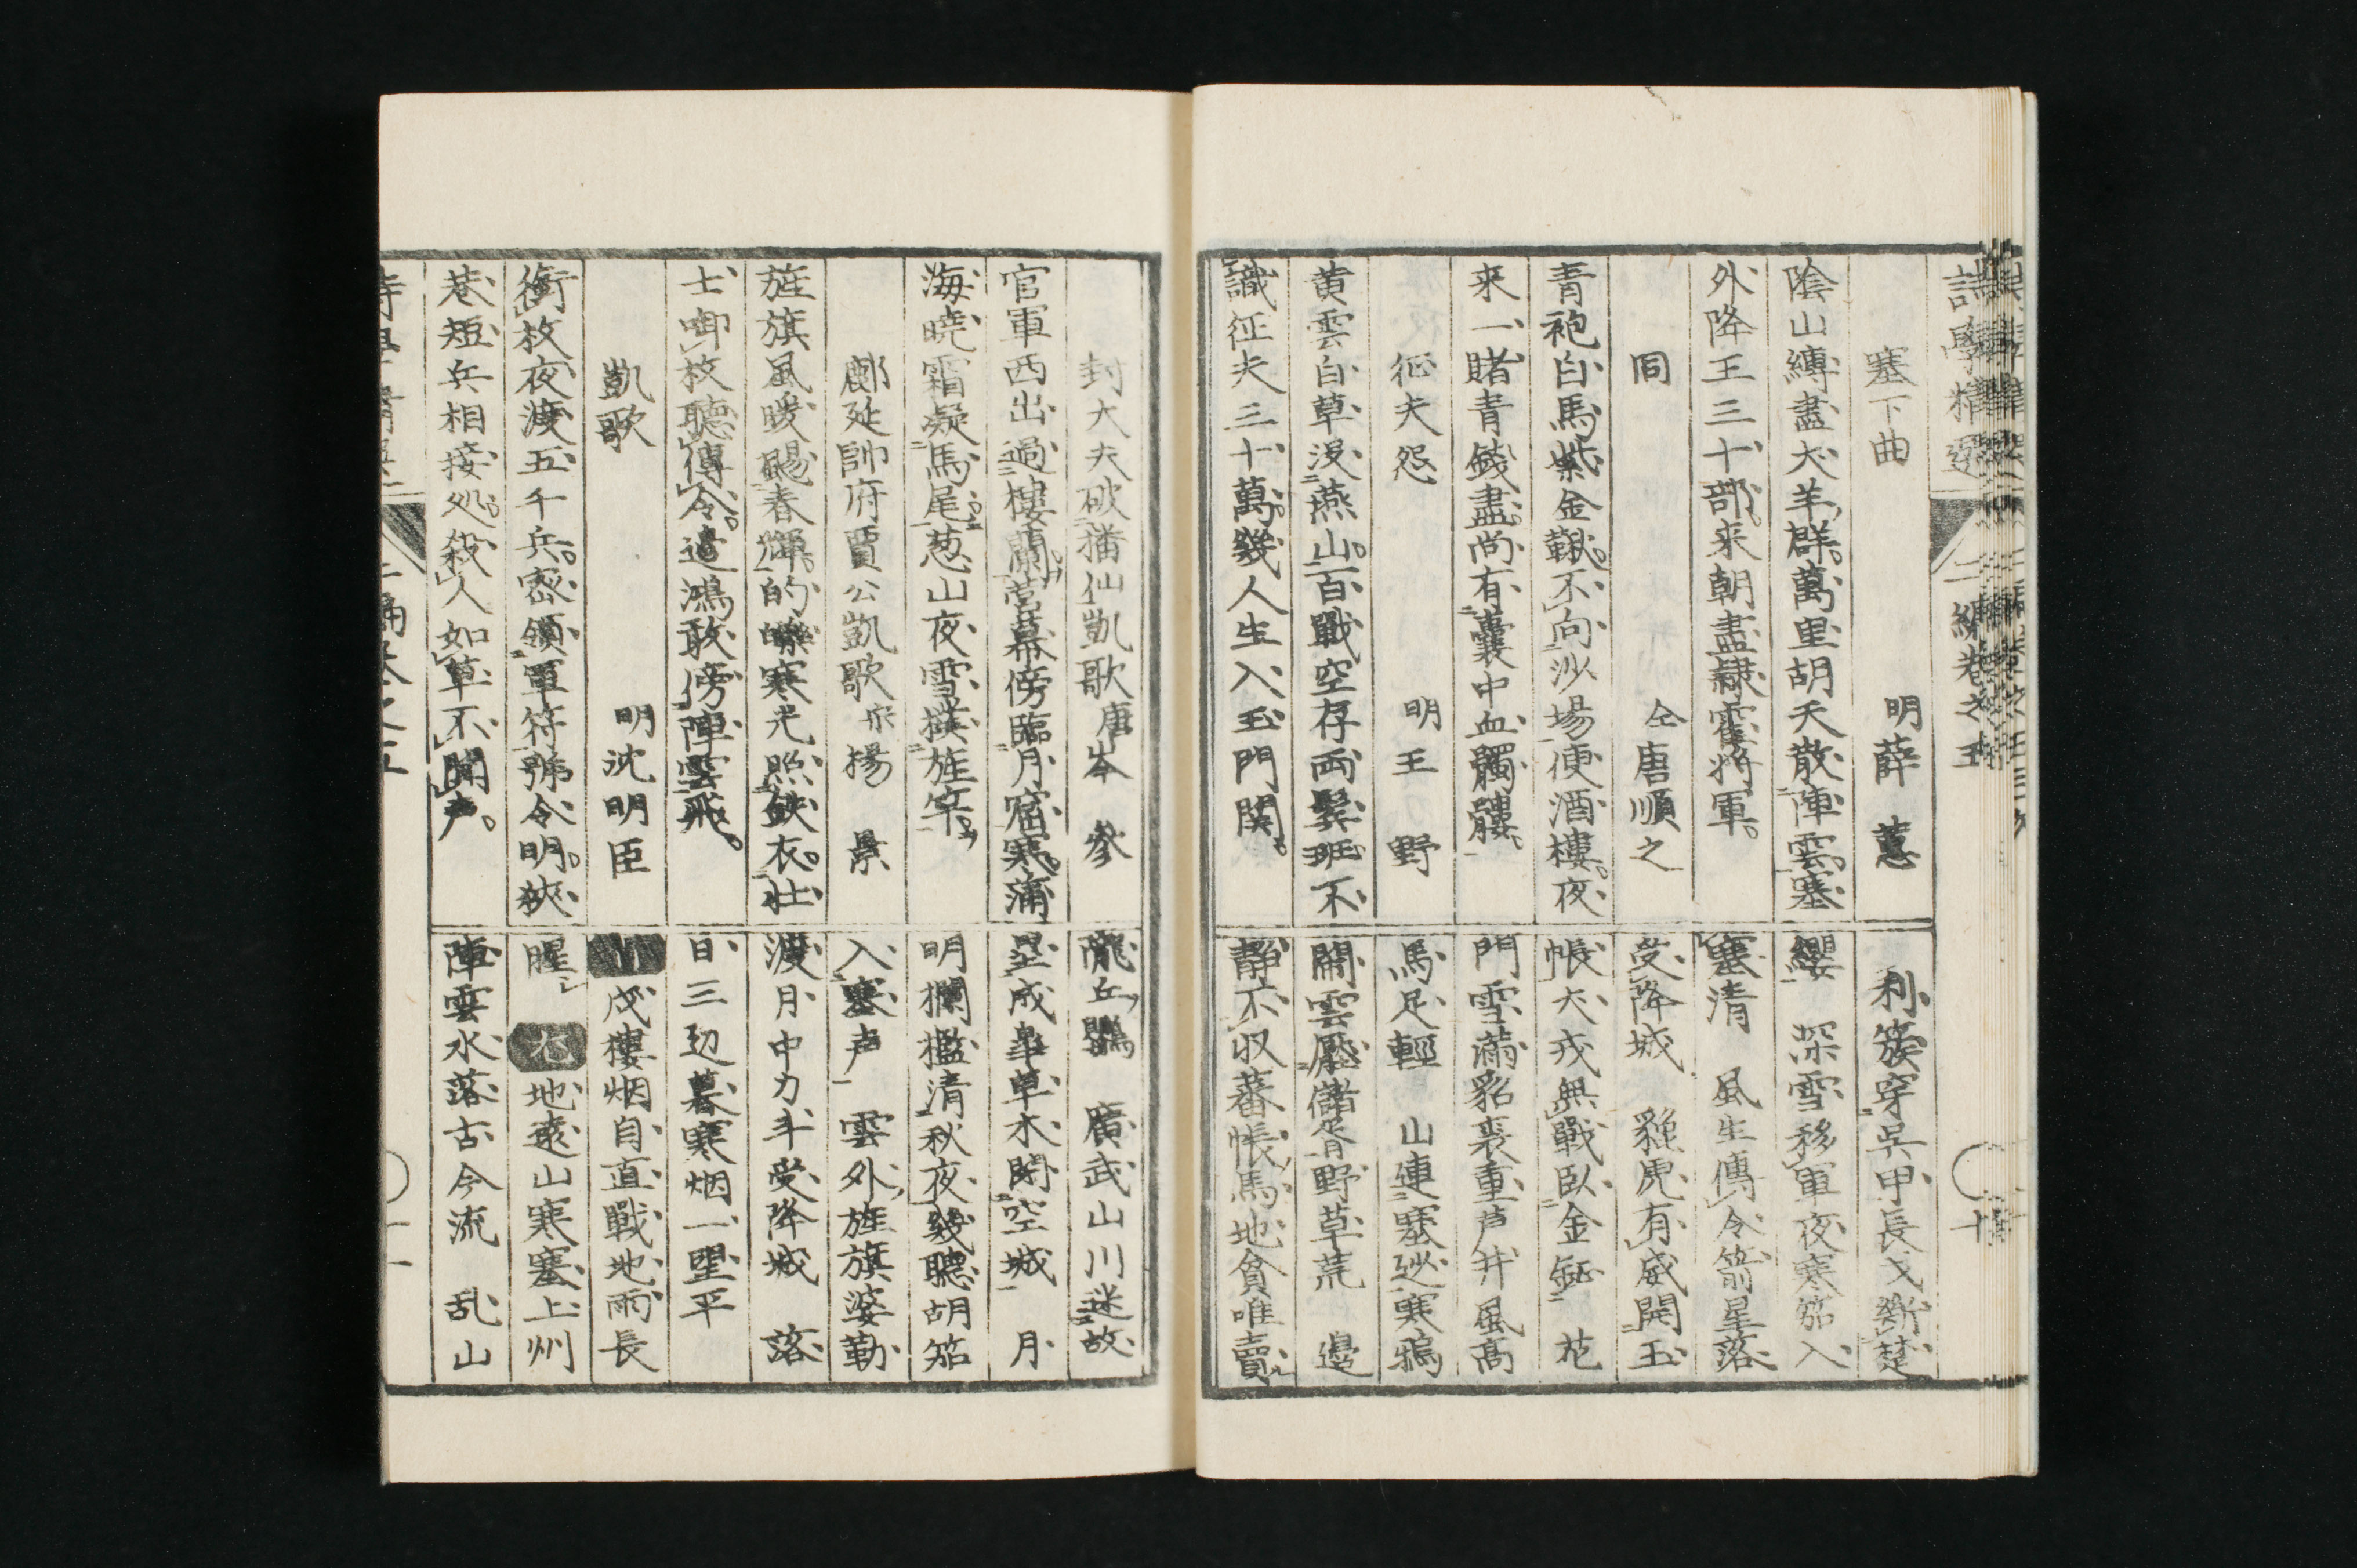 詩學精選 二編卷之五 十
塞下曲 明薛蕙
陰山縛盡犬羊群。萬里胡天散陣雲。塞
外降王三十部。来朝盡隷霍將軍。
同 仝唐順之
青袍白馬紫金鞦。不向沙場便酒樓。夜
来一賭青錢盡。尚有囊中血髑髏。
征夫怨 明王野
黄雲白草没燕山。百戰空存両鬂班。不
識征夫三十萬。幾人生入玉門関。
利簇穿吴甲長戈断楚
纓 深雪移軍夜寒笳入
塞清 風生傳令箭星落
受降城 貔虎有威開玉
帳犬戎無戰臥金鉦 花
門雪滿貂裘重芦井風高
馬足輕 山連塞迯寒鴉
閙雲壓儲胥野草荒 邊
静不収蕃帳馬地貧唯賣
封大夫破播仙凱歌 唐岑參
官軍西出過樓蘭。営幕傍臨月窟寒。蒲
海曉霜凝馬尾。葱山夜雪撲旌竿。
鄜延帥府賈公凱歌 宗楊景
旌旗風暖颺春輝。的皪寒光照鉄衣。壮
士啣枚聴傳令。遣鴻敢傍陣雲飛。
凱歌 明沈明臣
銜枚夜渡五千兵。密領軍符號令明。狹
巷短兵相接処。殺人如草不聞声。
隴丘鸚 廣武山川迷故
塁成皐草木閉空城 月
明欄檻清秋夜幾聽胡笳
入塞声 雲外旌旗婆勒
渡月中刀斗受降城 落
日三边暮寒烟一望平
戍樓烟自直戰地雨長
腥 起 地遠山寒塞上州
陣雲水落古今流 乱山
詩學精選 二編卷之五 十一